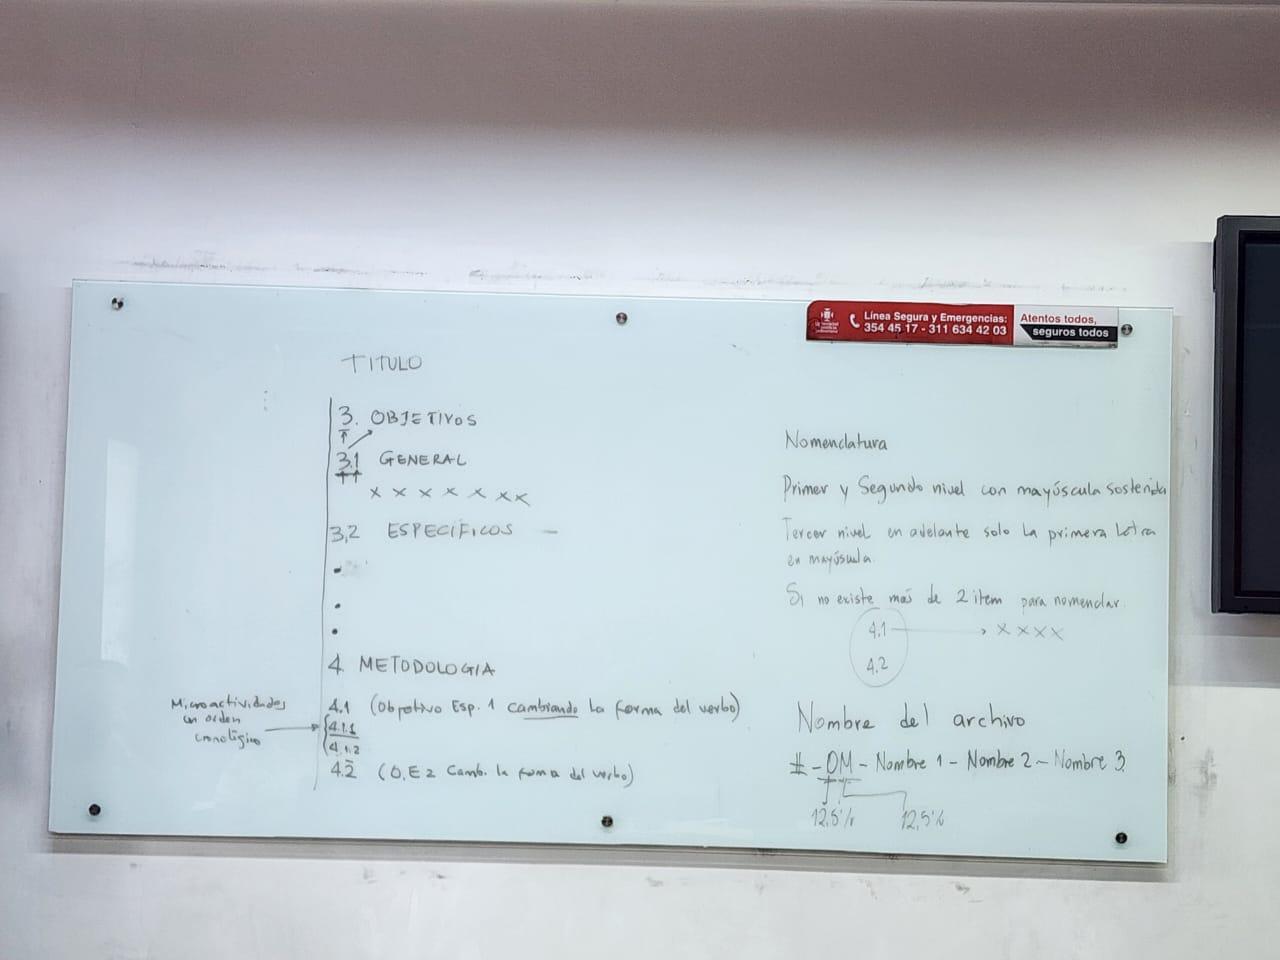 Línea Segura y Emergencias:
354 45 17 - 311 634 42 03
Atentos todos,
seguros todos
TITULO
3. OBJETIVOS
3.1 GENERAL
x x x x x x x
3,2 ESPECÍFICOS -
4. METODOLOGIA
4.1 (Objetivo Esp. 1 cambiando la forma del verbo)
Microactividades
en orden
cronológico
4.1.1
4.1.2
4.2 (O.E 2 Camb. la forma del verbo)
Nomenclatura
Primer y Segundo nivel con mayúscula sostenida
Tercer nivel en adelante solo la primera letra
en mayúscula.
Si no existe más de 2 item para nomenclar.
4.1 → x x x x
4.2
Nombre del archivo
# - OM - Nombre 1 - Nombre 2 - Nombre 3.
12,5% 12,5%